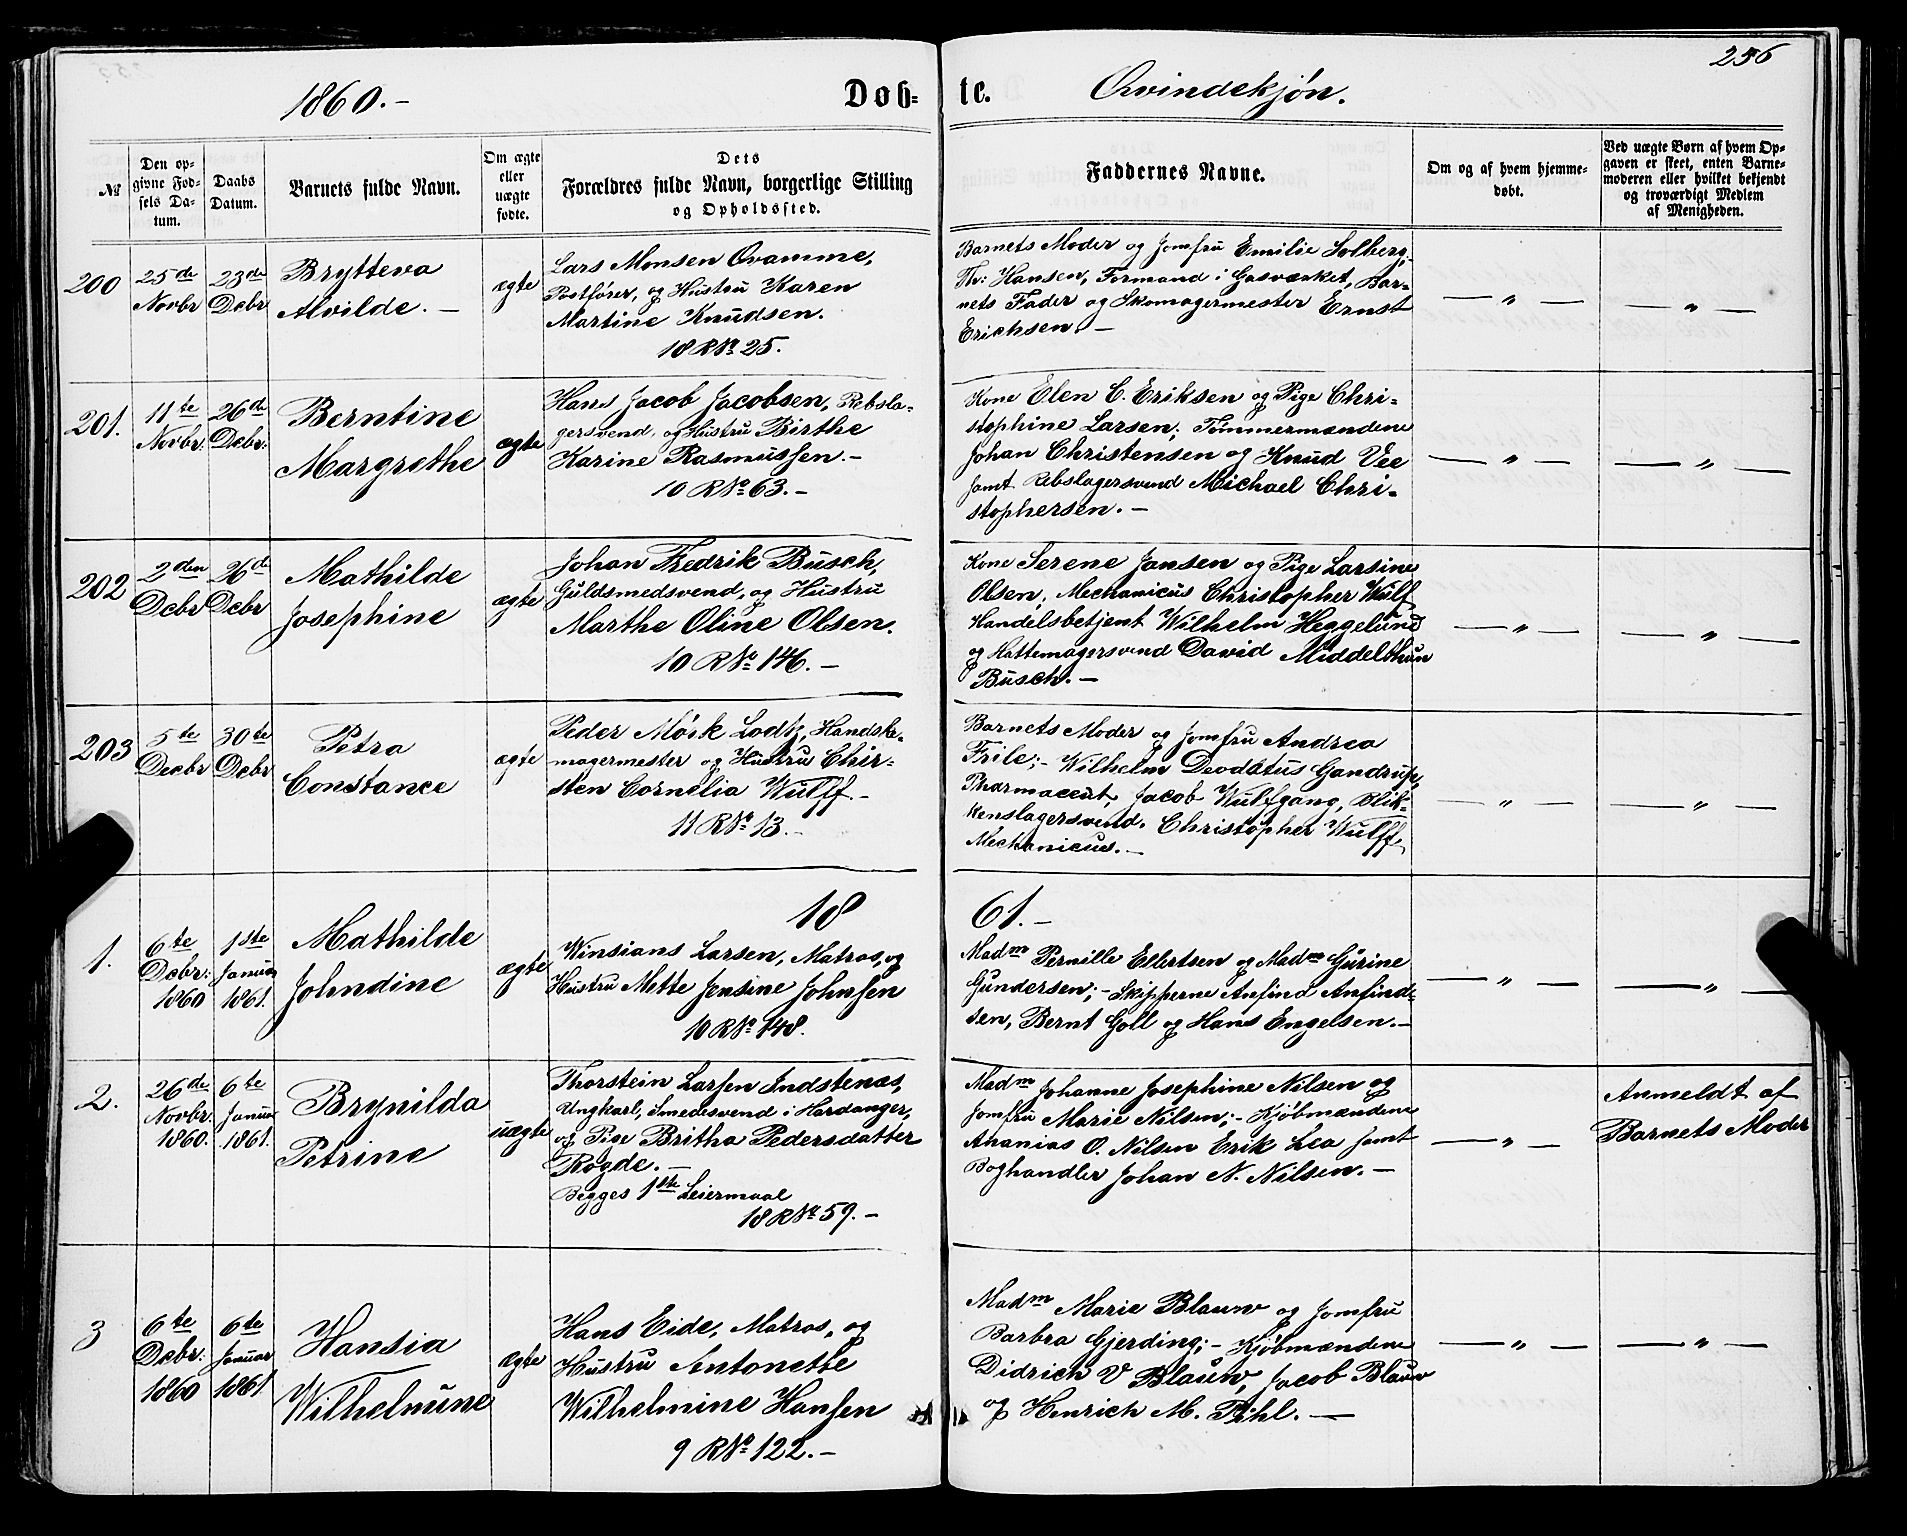 256
1860.-
Døb-
te.
Qvindekjøn.
№
Den op-
givne Fød-
sels Da-
tum.
Daabs
Datum.
Barnets fulde Navn.
Om ægte
eller
uægte
fødte.
Dets
Forældres fulde Navn, borgerlige Stilling
og Opholdssted.
Faddernes Navne.
Om og af hvem hjemme-
døbt.
Ved uægte Børn af hvem Op-
gaven er skeet, enten Barne-
moderen eller hvilket bekjendt
og troværdigt Medlem
af Menigheden.
200
25de
Novbr
23de
Dcbr
Brytteva
Alvilde. -
ægte
Lars Monsen Qvamme,
Postfører, og Hustru Karen
Martine Knudsen.
18 R № 25.
Barnets Moder og Jomfru Emilie Solberg,
Th: Hansen, Formand i Gasværket, Bar-
nets Fader og Skomagermester Ernst
Erichsen. -
— „ —
— „ —
201.
11te
Novbr.
26de
Dcbr.
Berntine
Margrethe
ægte
Hans Jacob Jacobsen, Rebsla-
gersvend, og Hustru Birthe
Karine Rasmussen. -
10 R № 63. -
Kone Elen C. Eriksen og Pige Chri-
stophine Larsen; Tømmermændene
Johan Christensen og Knud Vee
samt Rebslagersvend Michael Chri-
stophersen. -
— „ —
— „ —
202
2den
Dcbr
26de
Dcbr
Mathilde
Josephine
ægte
Johan Fredrik Busch,
Guldsmedsvend, og Hustru
Marthe Oline Olsen.
10 R № 146. -
Kone Serene Jansen og Pige Larsine
Olsen, Mechanicus Christopher Wulf
Handelsbetjent Wilhelm Heggelund
og Hattemagersvend David Middelthun
Busch. -
— „ —
— „ —
203
5te
Decbr
30te
Dcbr
Petra
Constance
ægte
Peder Mørk Lodtz, Handske-
magermester og Hustru Chir-
sten Cornelia Wulff. -
11 R № 13. -
Barnets Moder og Jomfru Andrea
Frile; - Wilhelm Deodatus Gandrup,
Pharmaceut, Jacob Wulfgang, Blik-
kenslagersvend. Christopher Wulff,
Mechanicus. -
— „ —
— „ —
18
61. -
1.
6te
Dcbr:
1860
1ste
Januar
1861.
Mathilde
Johndine
ægte
Winsians Larsen, Matros, og
Hustru Mette Jensine Johnsen
10 R № 148.
Madm Pernille Ellertsen og Madm Gurine
Gundersen; - Skipperne Anfind Anfind-
sen, Bernt Goll og Hans Engelsen. -
— „ —
— „ —
2.
26de
Novbr.
1860.
6te
Januar
1861.
Brynilda
Petrine
uægte
Thorstein Larsen Indstenæs,
Ungkarl, Smedesvend i Hardanger,
og Pige Britha Pedersdatter
Rogde. -
Begges 1ste Leiermaal
18 R № 59. -
Madm Johanne Josephine Nilsen og
Jomfru Marie Nilsen; - Kjøbmændene
Ananias O. Nilsen Erik Lea samt
Boghandler Johan N. Nilsen. -
— „ —
Anmeldt af
Barnets Moder
3
6te
Dcbr:
1860
6te
Januar
1861
Hansia
Wilhelmine
ægte
Hans Eide, Matros, og
Hustru Antonette
Wilhelmine Hansen
9 R № 122. -
Madm Marie Blauw og Jomfru
Barbra Gjerding; - Kjøbmændene
Didrich V Blauw, Jacob Blauw
og Henrich M. Pihl. -
— „ —
— „ —